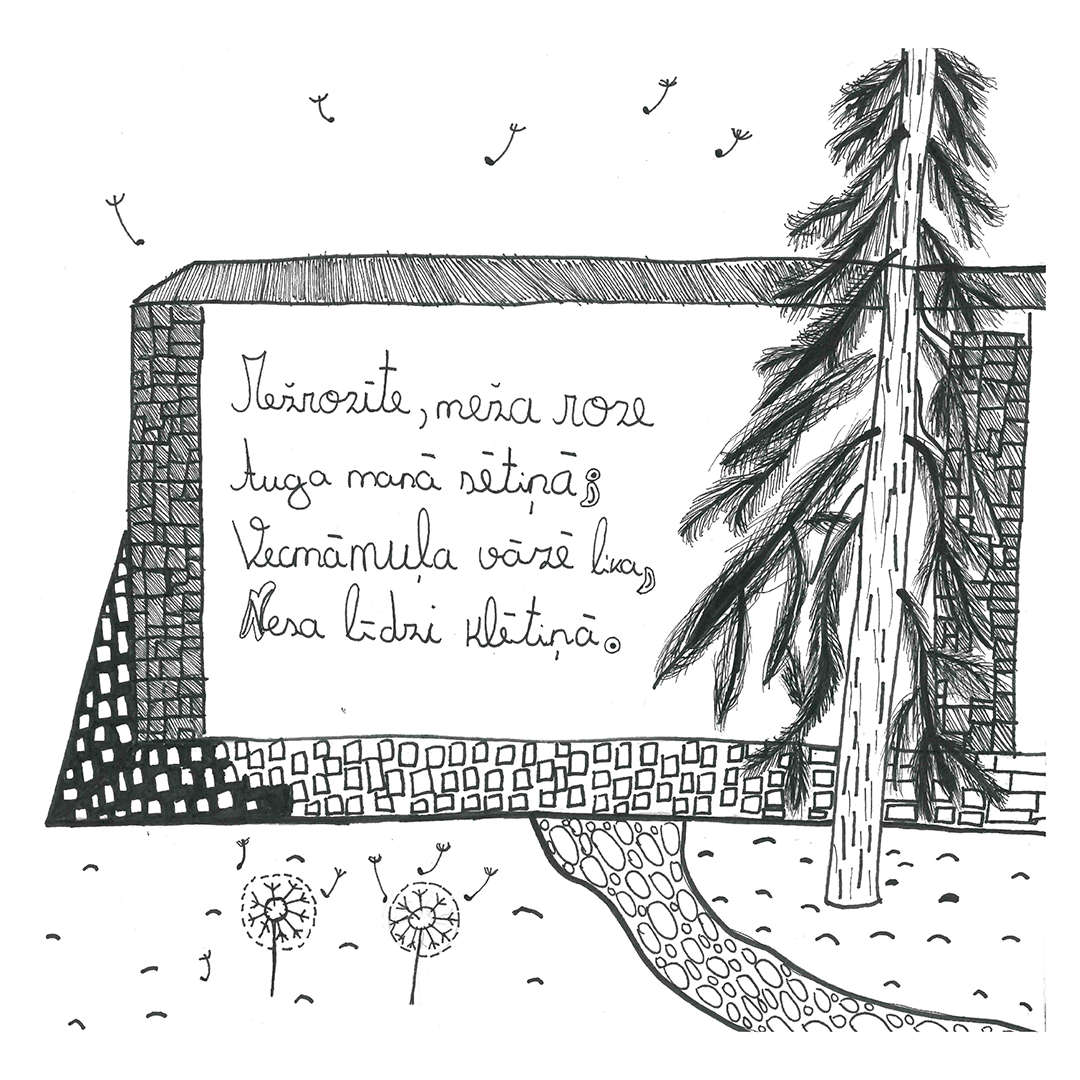 Mežrozīte, meža roze
Auga manā sētiņā;
Vecmāmuļa vāzē lika,
Nesa līdzi klētiņā.